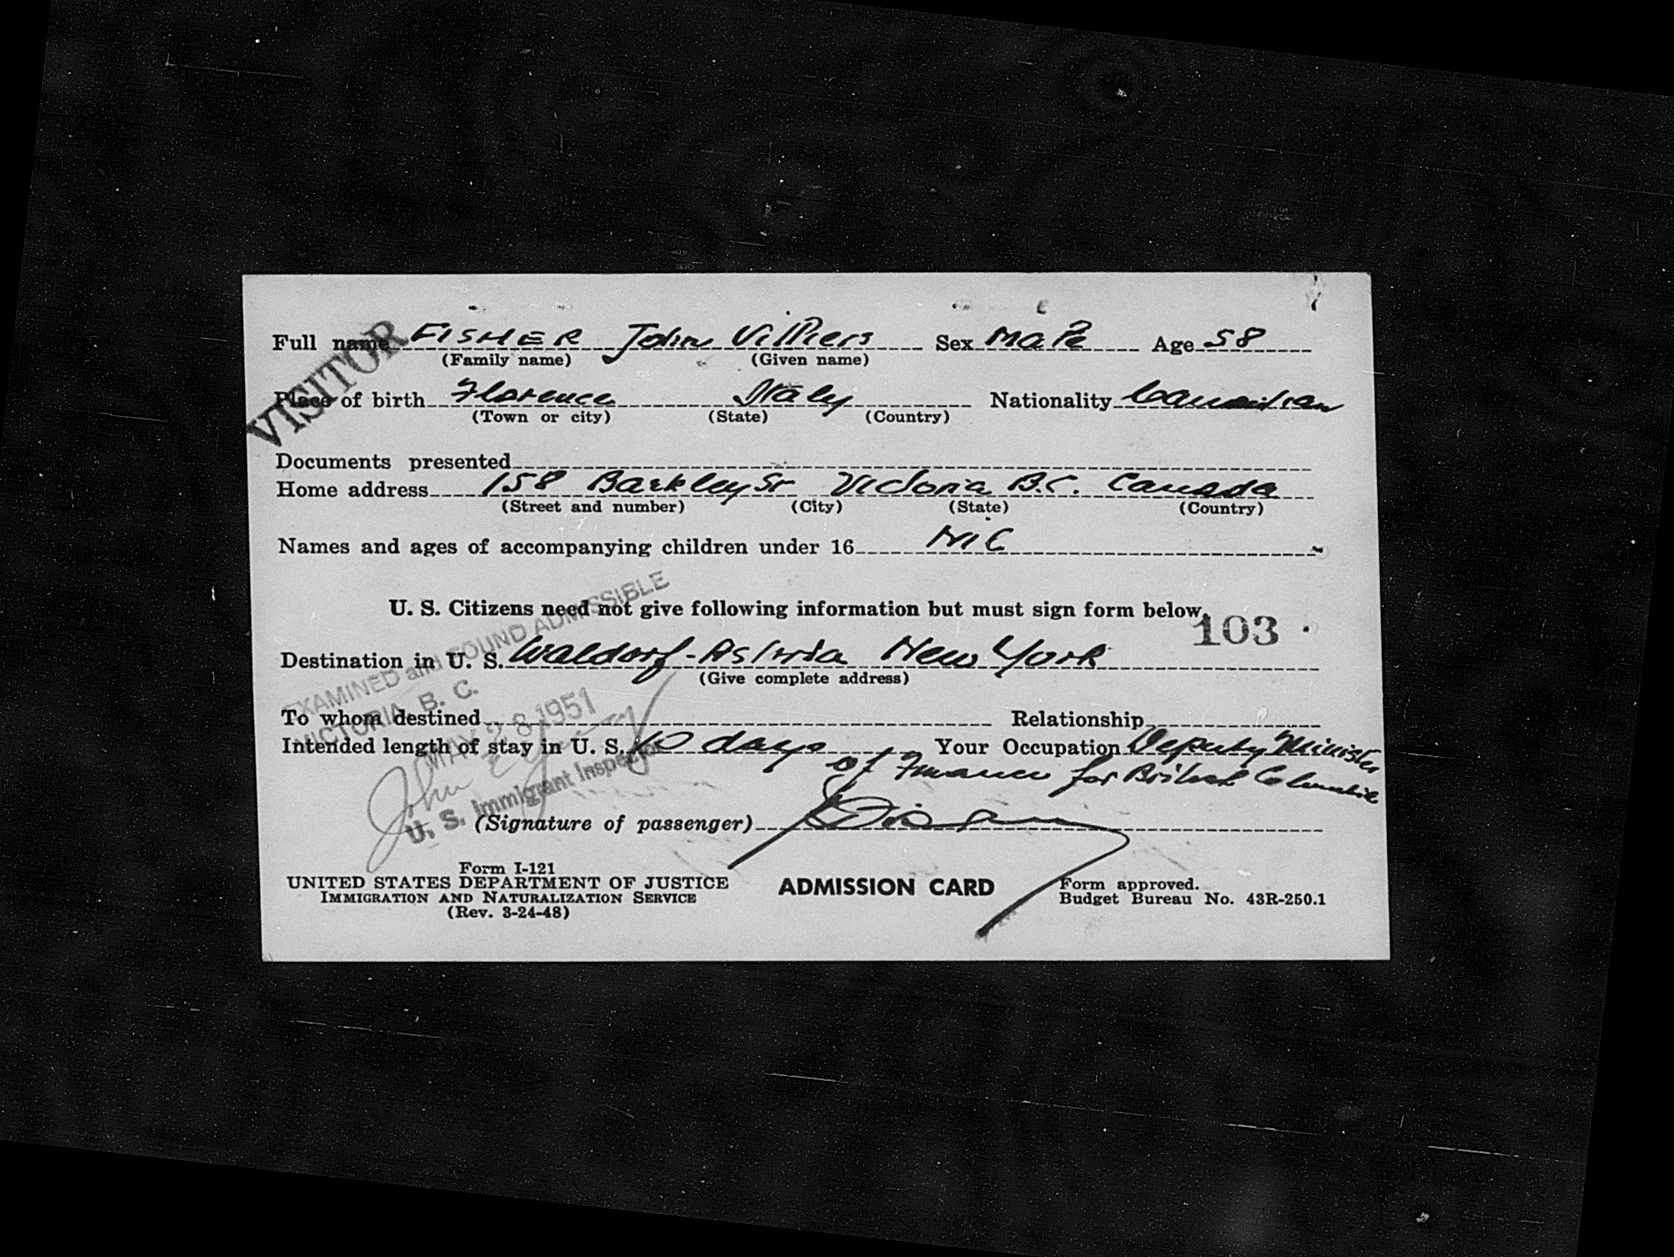 Full name FISHER John Villiers Sex Male Age 58
(Family name) (Given name)
VISITOR
Place of birth Florence Italy Nationality Canadian
(Town or city) (State) (Country)
Documents presented
Home address 158 Barkley St Victoria B.C. Canada
(Street and number) (City) (State) (Country)
Names and ages of accompanying children under 16 NiL
U. S. Citizens need not give following information but must sign form below.
103
Destination in U. S. Waldorf-Astoria New York
(Give complete address)
EXAMINED and FOUND ADMISSIBLE
VICTORIA, B. C.
MAY 28 1951
John
U. S. Immigrant Inspector
To whom destined Relationship
Intended length of stay in U. S. 10 days Your Occupation Deputy Minister
of Finance for British Columbia
(Signature of passenger)
Form I-121
UNITED STATES DEPARTMENT OF JUSTICE
IMMIGRATION AND NATURALIZATION SERVICE
(Rev. 3-24-48)
ADMISSION CARD
Form approved.
Budget Bureau No. 43R-250.1